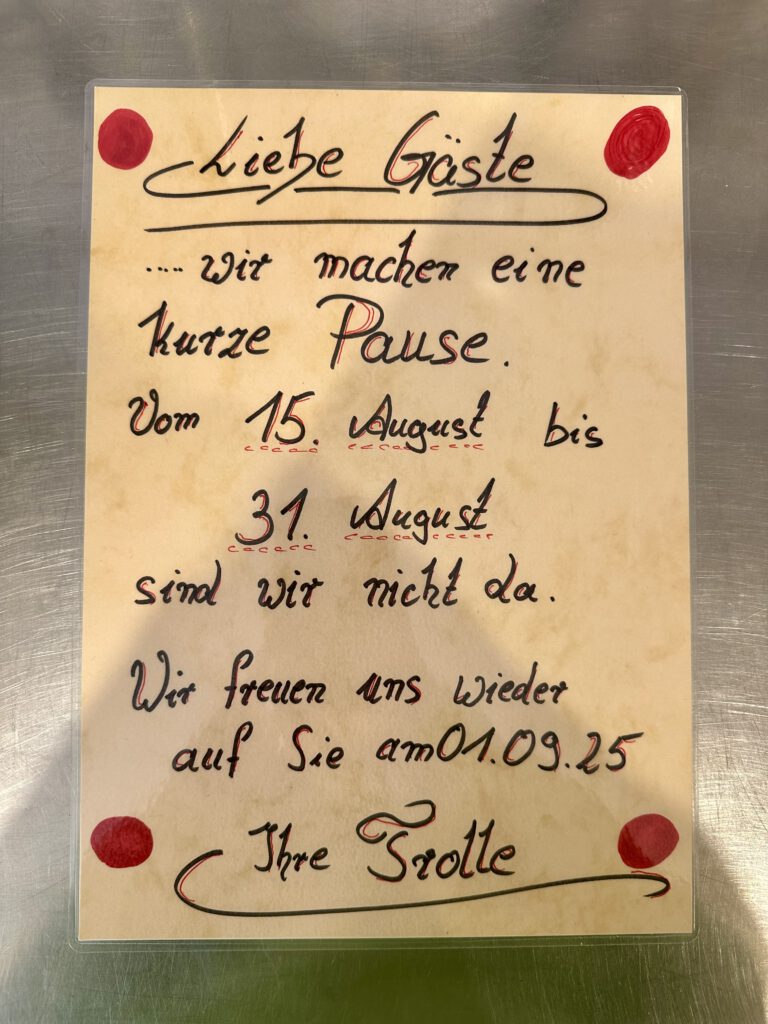 Liebe Gäste
.... wir machen eine
kurze Pause.
Vom 15. August bis
31. August
sind wir nicht da.
Wir freuen uns wieder
auf Sie am 01.09.25
Ihre Trolle